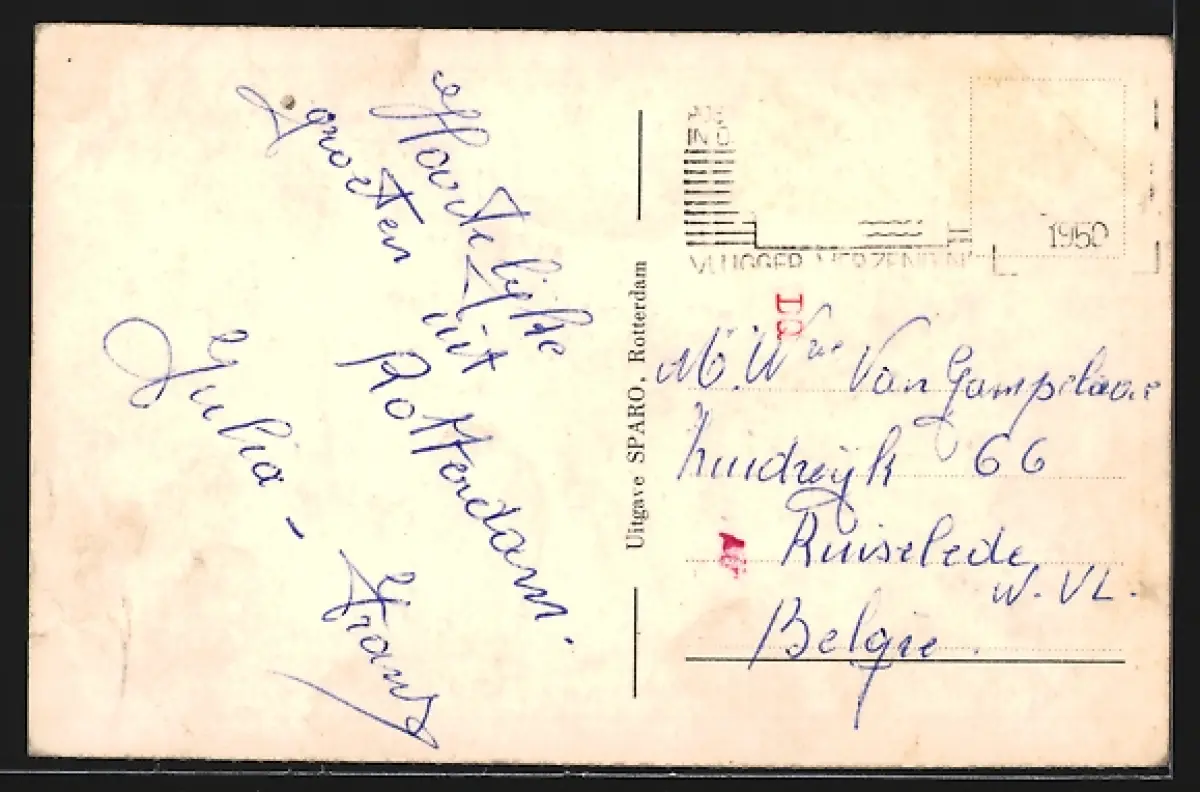 Hartelijke
groeten uit
Rotterdam.
Julia - Frans
Uitgave SPARO, Rotterdam
IN D
VLUGGER VERZENDIN
1950
DG
M. Wwe Van Gampelaere
66
Ruiselede
W. VL.
Belgie.